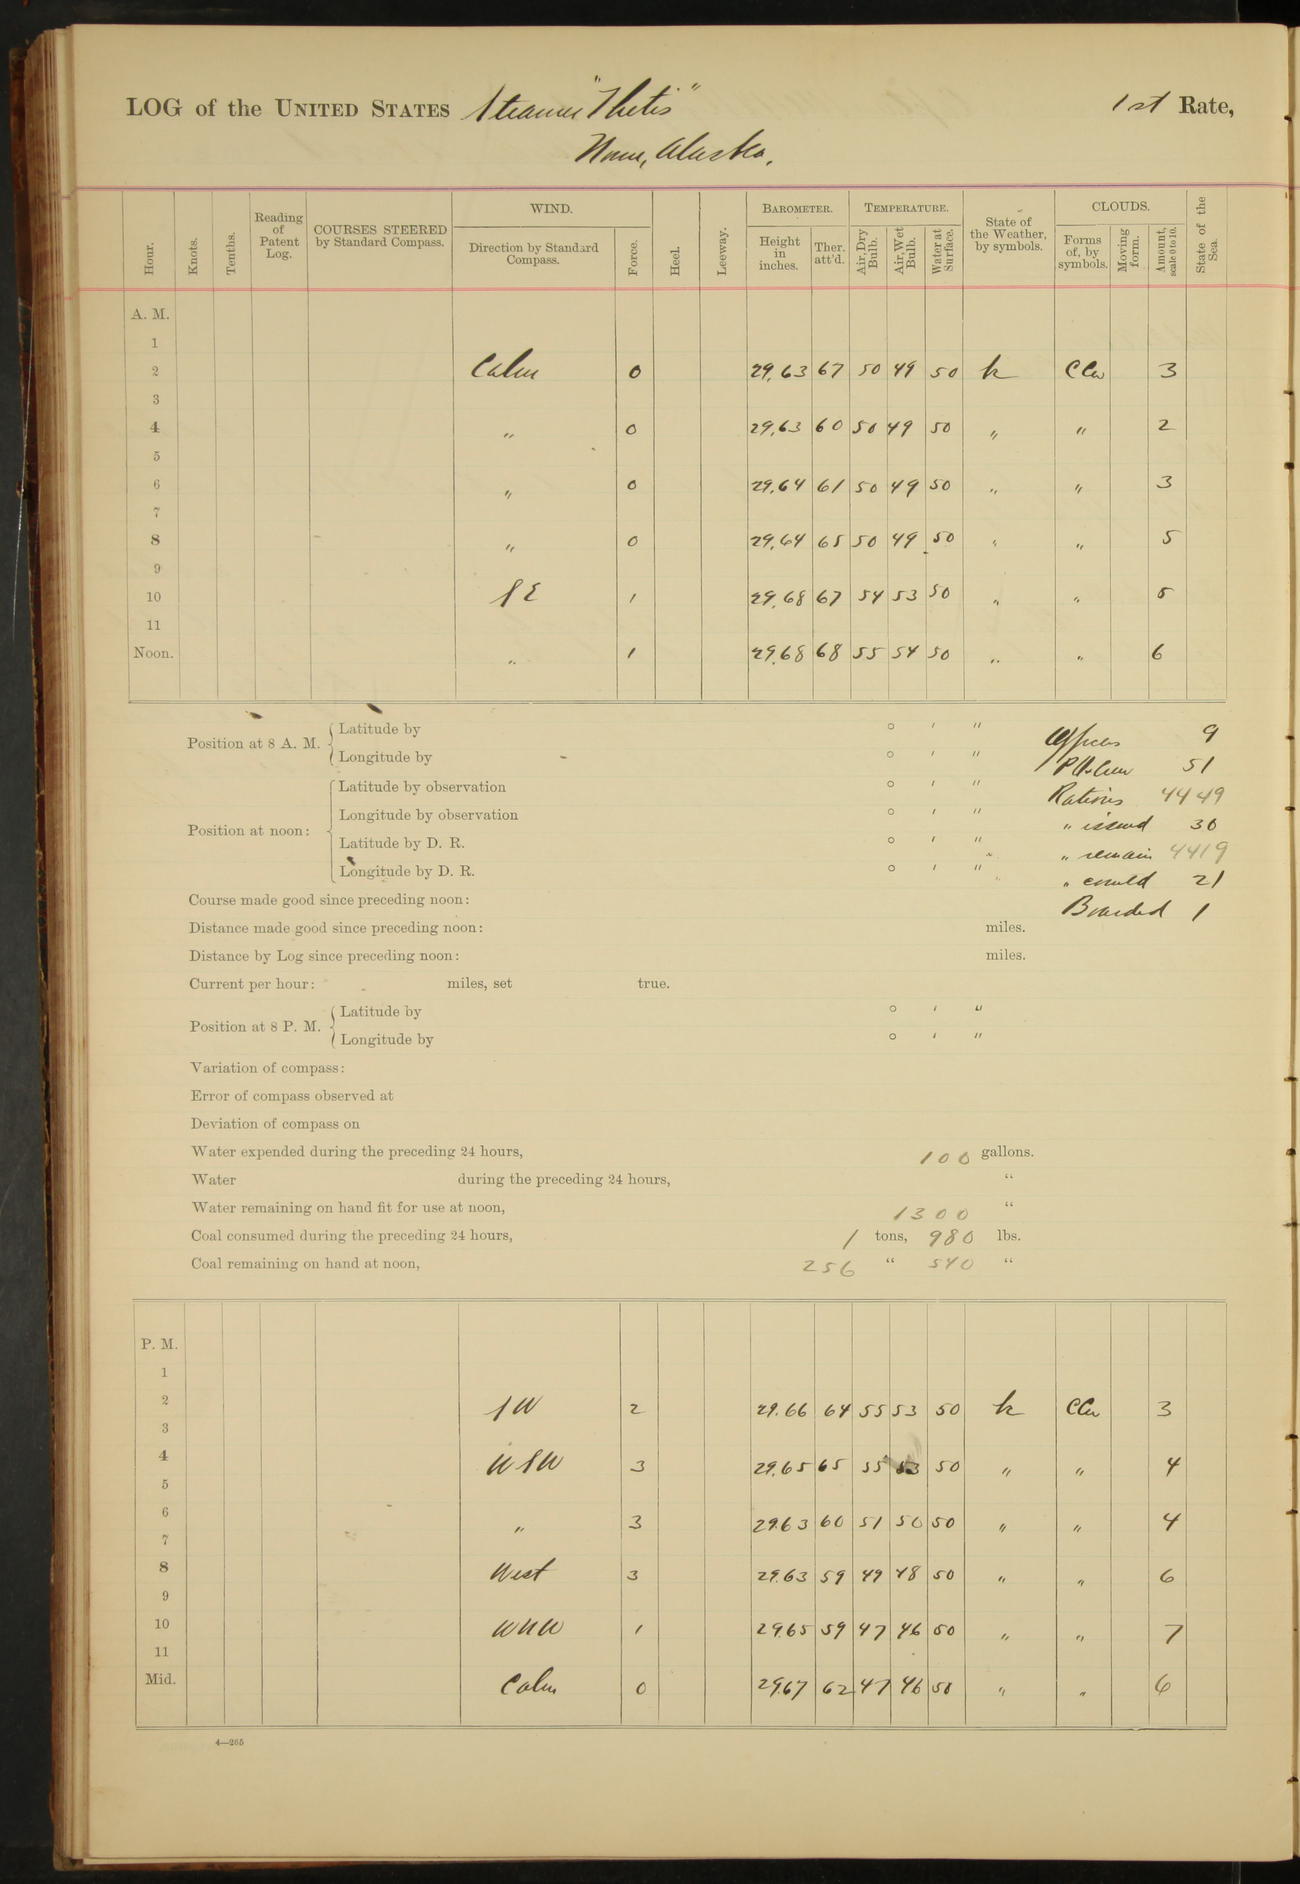 LOG of the UNITED STATES Steamer "Thetis" 1st Rate,
Nome, Alaska.
Hour. Knots. Tenths. Reading of Patent Log. COURSES STEERED by Standard Compass. WIND. Direction by Standard Compass. Force. Heel. Leeway. BAROMETER. Height in inches. Ther. att'd. TEMPERATURE. Air, Dry Bulb. Air, Wet Bulb. Water at Surface. State of the Weather, by symbols. CLOUDS. Forms of, by symbols. Moving form. Amount, scale 0 to 10. State of the Sea.
A. M.
1
2 Calm 0 29.63 67 50 49 50 bc CCu 3
3
4 " 0 29.63 60 50 49 50 " " 2
5
6 " 0 29.64 61 50 49 50 " " 3
7
8 " 0 29.64 65 50 49 50 " " 5
9
10 SE 1 29.68 67 54 53 50 " " 5
11
Noon. " 1 29.68 68 55 54 50 " " 6
Position at 8 A. M. Latitude by ° ' " Officers 9
Longitude by ° ' " P. O. & Crew 51
Position at noon: Latitude by observation ° ' " Rations 4449
Longitude by observation ° ' " " issued 30
Latitude by D. R. ° ' " " remain 4419
Longitude by D. R. ° ' " " com'd 21
Course made good since preceding noon: Boarded 1
Distance made good since preceding noon: miles.
Distance by Log since preceding noon: miles.
Current per hour: miles, set true.
Position at 8 P. M. Latitude by ° ' "
Longitude by ° ' "
Variation of compass:
Error of compass observed at
Deviation of compass on
Water expended during the preceding 24 hours, 100 gallons.
Water during the preceding 24 hours, "
Water remaining on hand fit for use at noon, 1300 "
Coal consumed during the preceding 24 hours, 1 tons, 980 lbs.
Coal remaining on hand at noon, 256 " 540 "
P. M.
1
2 SW 2 29.66 64 55 53 50 bc CCu 3
3
4 WSW 3 29.65 65 55 53 50 " " 4
5
6 " 3 29.63 60 51 50 50 " " 4
7
8 West 3 29.63 59 49 48 50 " " 6
9
10 WNW 1 29.65 59 47 46 50 " " 7
11
Mid. Calm 0 29.67 62 47 46 50 " " 6
4—265